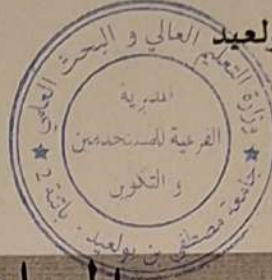 ولعيد
وزارة التعليم العالي و البحث العلمي
المديرية
الفرعية للمستخدمين
و التكوين
جامعة مصطفى بن بولعيد . باتنة 2